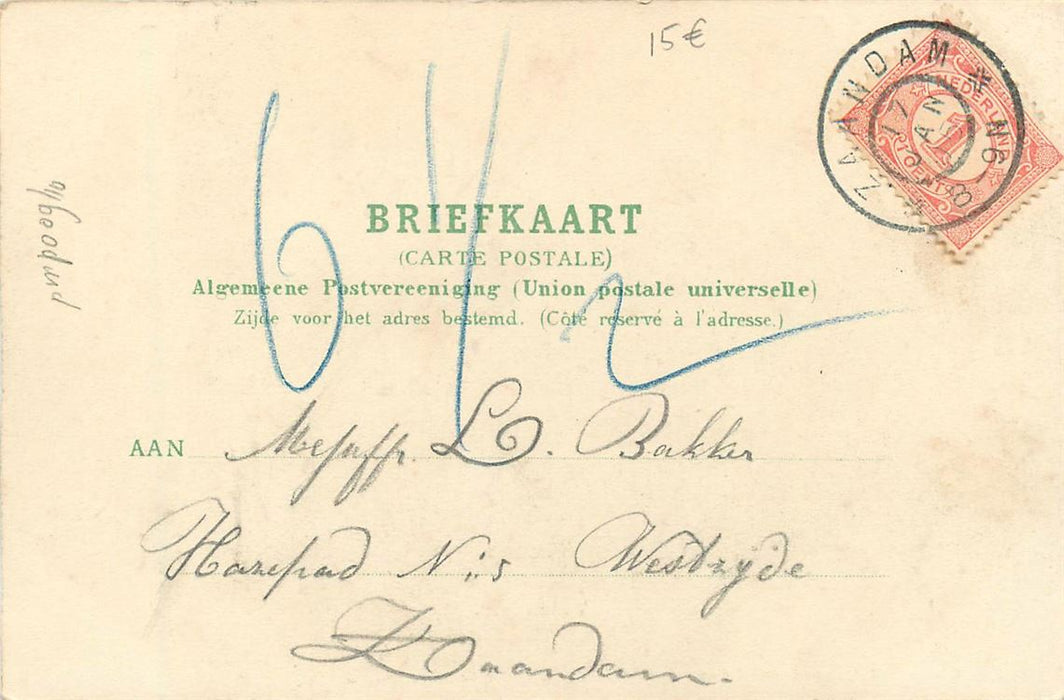 15€
ZAANDAM * 8-9N
17 JAN
NEDERLAND
1
CENT
6 1/2
BRIEFKAART
(CARTE POSTALE)
Algemeene Postvereeniging (Union postale universelle)
Zijde voor het adres bestemd. (Côté réservé à l'adresse.)
AAN Mejuffr. L. Bakker
Hazepad N:5 Westzyde
Zaandam.